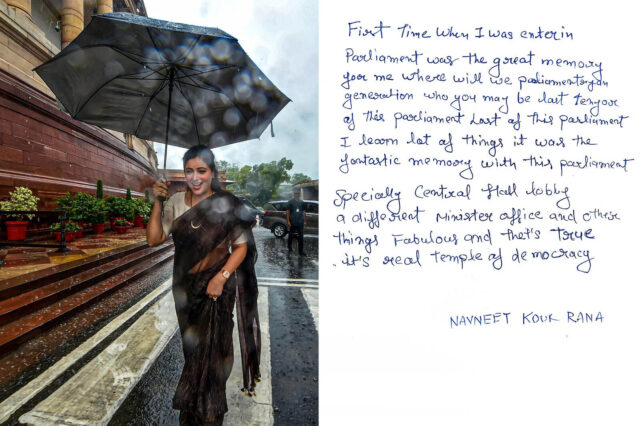 First Time When I was enterin
Parliament was the great memory
for me where will we parliamentarian
generation who you may be last tenyor
of this parliament last of this parliament
I learn lot of things it was the
fantastic memoory with this parliament
Specially Central Hall lobby
a different Minister office and other
things Fabulous and that's true
it's real temple of democracy
NAVNEET KOUR RANA